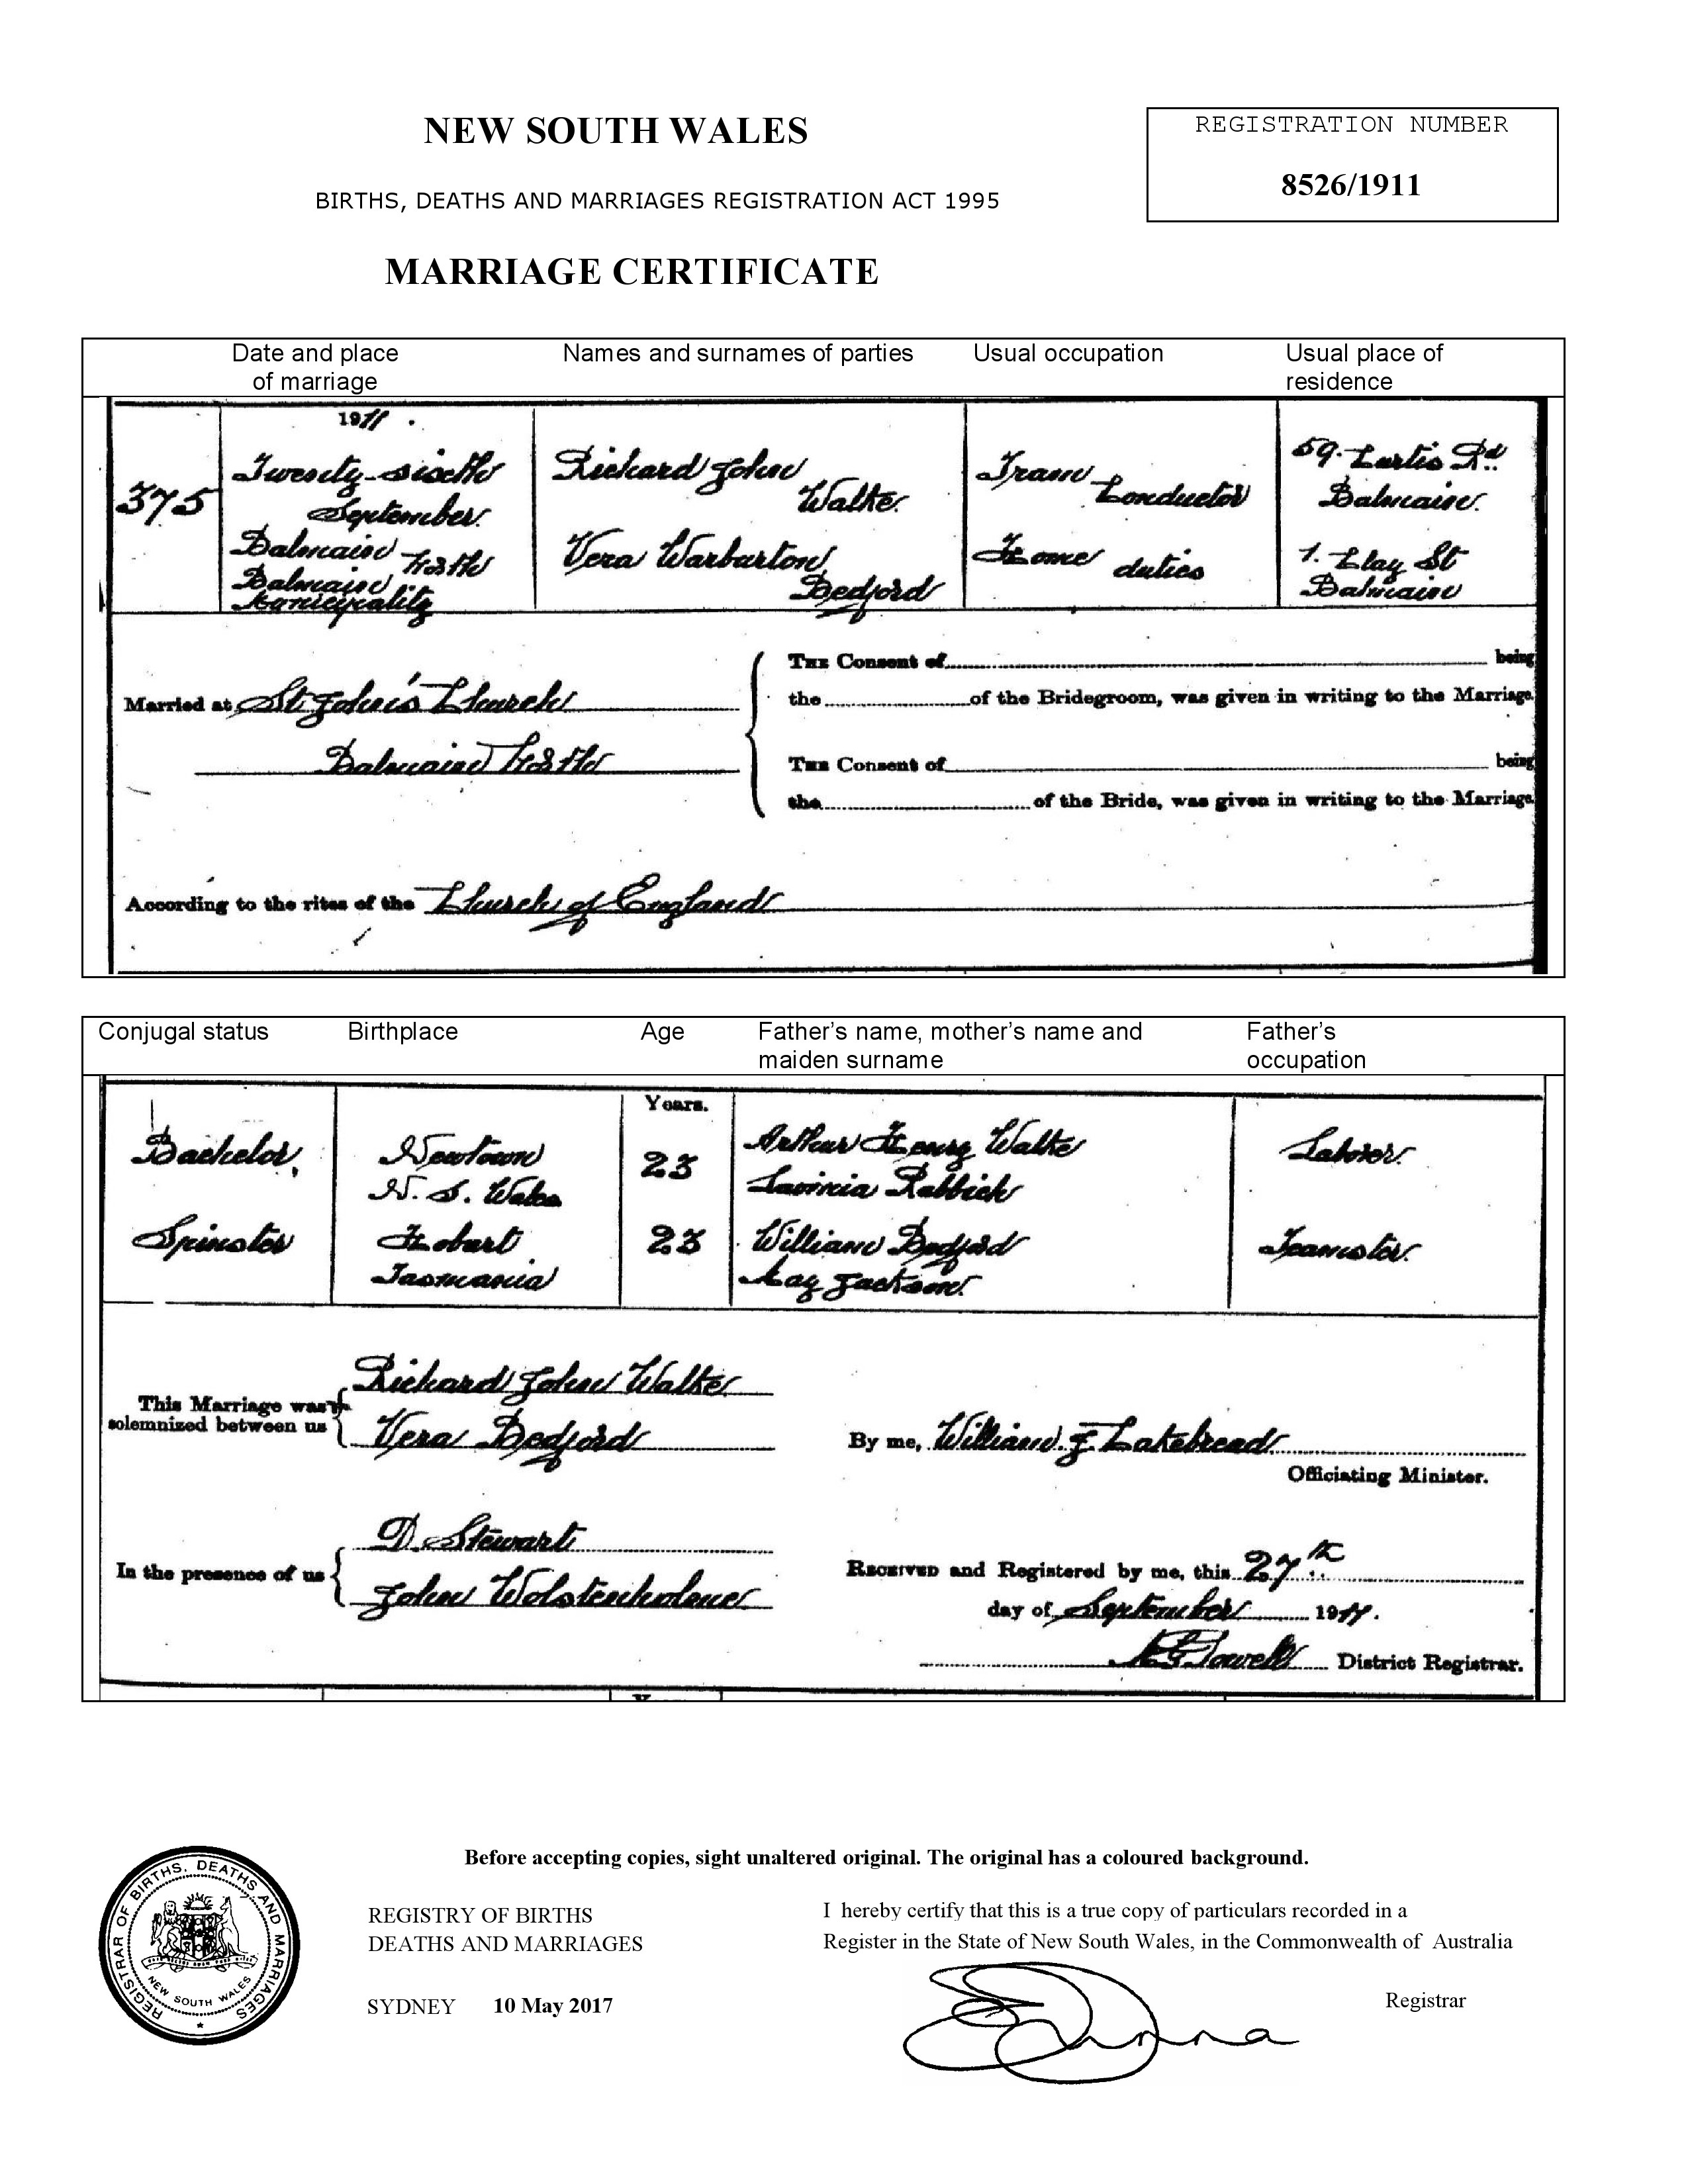 NEW SOUTH WALES
REGISTRATION NUMBER
8526/1911
BIRTHS, DEATHS AND MARRIAGES REGISTRATION ACT 1995
MARRIAGE CERTIFICATE
Date and place of marriage
Names and surnames of parties
Usual occupation
Usual place of residence
375
1911.
Twenty-sixth
September.
Balmain North
Balmain
Municipality
Richard John
Walke.
Vera Warburton
Bedford
Tram Conductor
Home duties
59. Curtis Rd.
Balmain.
1. Clay St
Balmain
Married at St John's Church
Balmain North
THE Consent of being
the of the Bridegroom, was given in writing to the Marriage.
THE Consent of being
the of the Bride, was given in writing to the Marriage.
According to the rites of the Church of England
Conjugal status
Birthplace
Age
Father's name, mother's name and maiden surname
Father's occupation
Years.
Bachelor.
Newtown
N. S. Wales
23
Arthur Henry Walke
Lavinia Rabbich
Laborer.
Spinster
Hobart
Tasmania
23
William Bedford
May Jackson.
Teamster.
This Marriage was solemnized between us
Richard John Walke
Vera Bedford
By me, William F Cakebread
Officiating Minister.
In the presence of us
D. Stewart
John Wolstenholme
RECEIVED and Registered by me, this 27th
day of September 1911.
District Registrar.
REGISTRAR OF BIRTHS, DEATHS AND MARRIAGES
NEW SOUTH WALES
Before accepting copies, sight unaltered original. The original has a coloured background.
REGISTRY OF BIRTHS
DEATHS AND MARRIAGES
SYDNEY 10 May 2017
I hereby certify that this is a true copy of particulars recorded in a
Register in the State of New South Wales, in the Commonwealth of Australia
Registrar